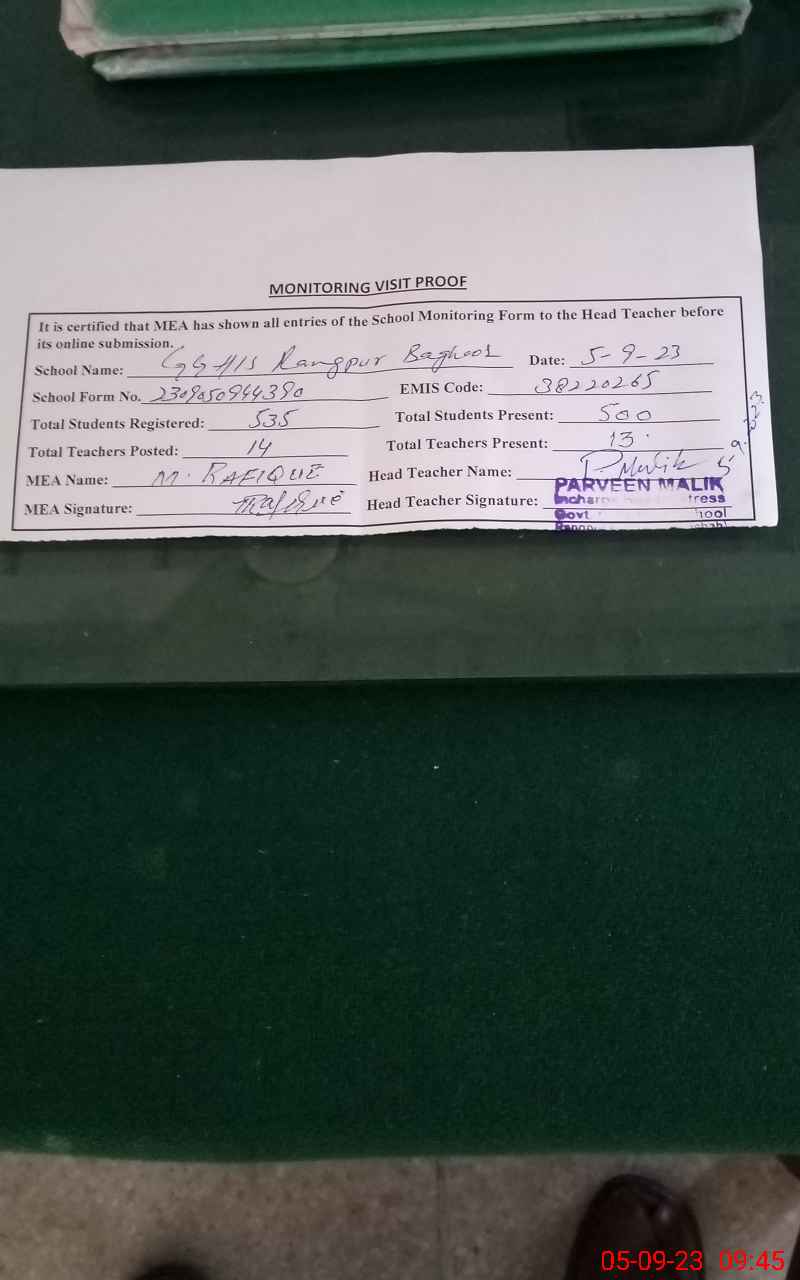 MONITORING VISIT PROOF
It is certified that MEA has shown all entries of the School Monitoring Form to the Head Teacher before
its online submission.
School Name: GGHS Rangpur Baghoor Date: 5-9-23
School Form No. 2309050944390 EMIS Code: 38220265
Total Students Registered: 535 Total Students Present: 500
Total Teachers Posted: 14 Total Teachers Present: 13
MEA Name: M. RAFIQUE Head Teacher Name: P Malik
MEA Signature: Rafique Head Teacher Signature:
PARVEEN MALIK
Govt
05-09-23 09:45